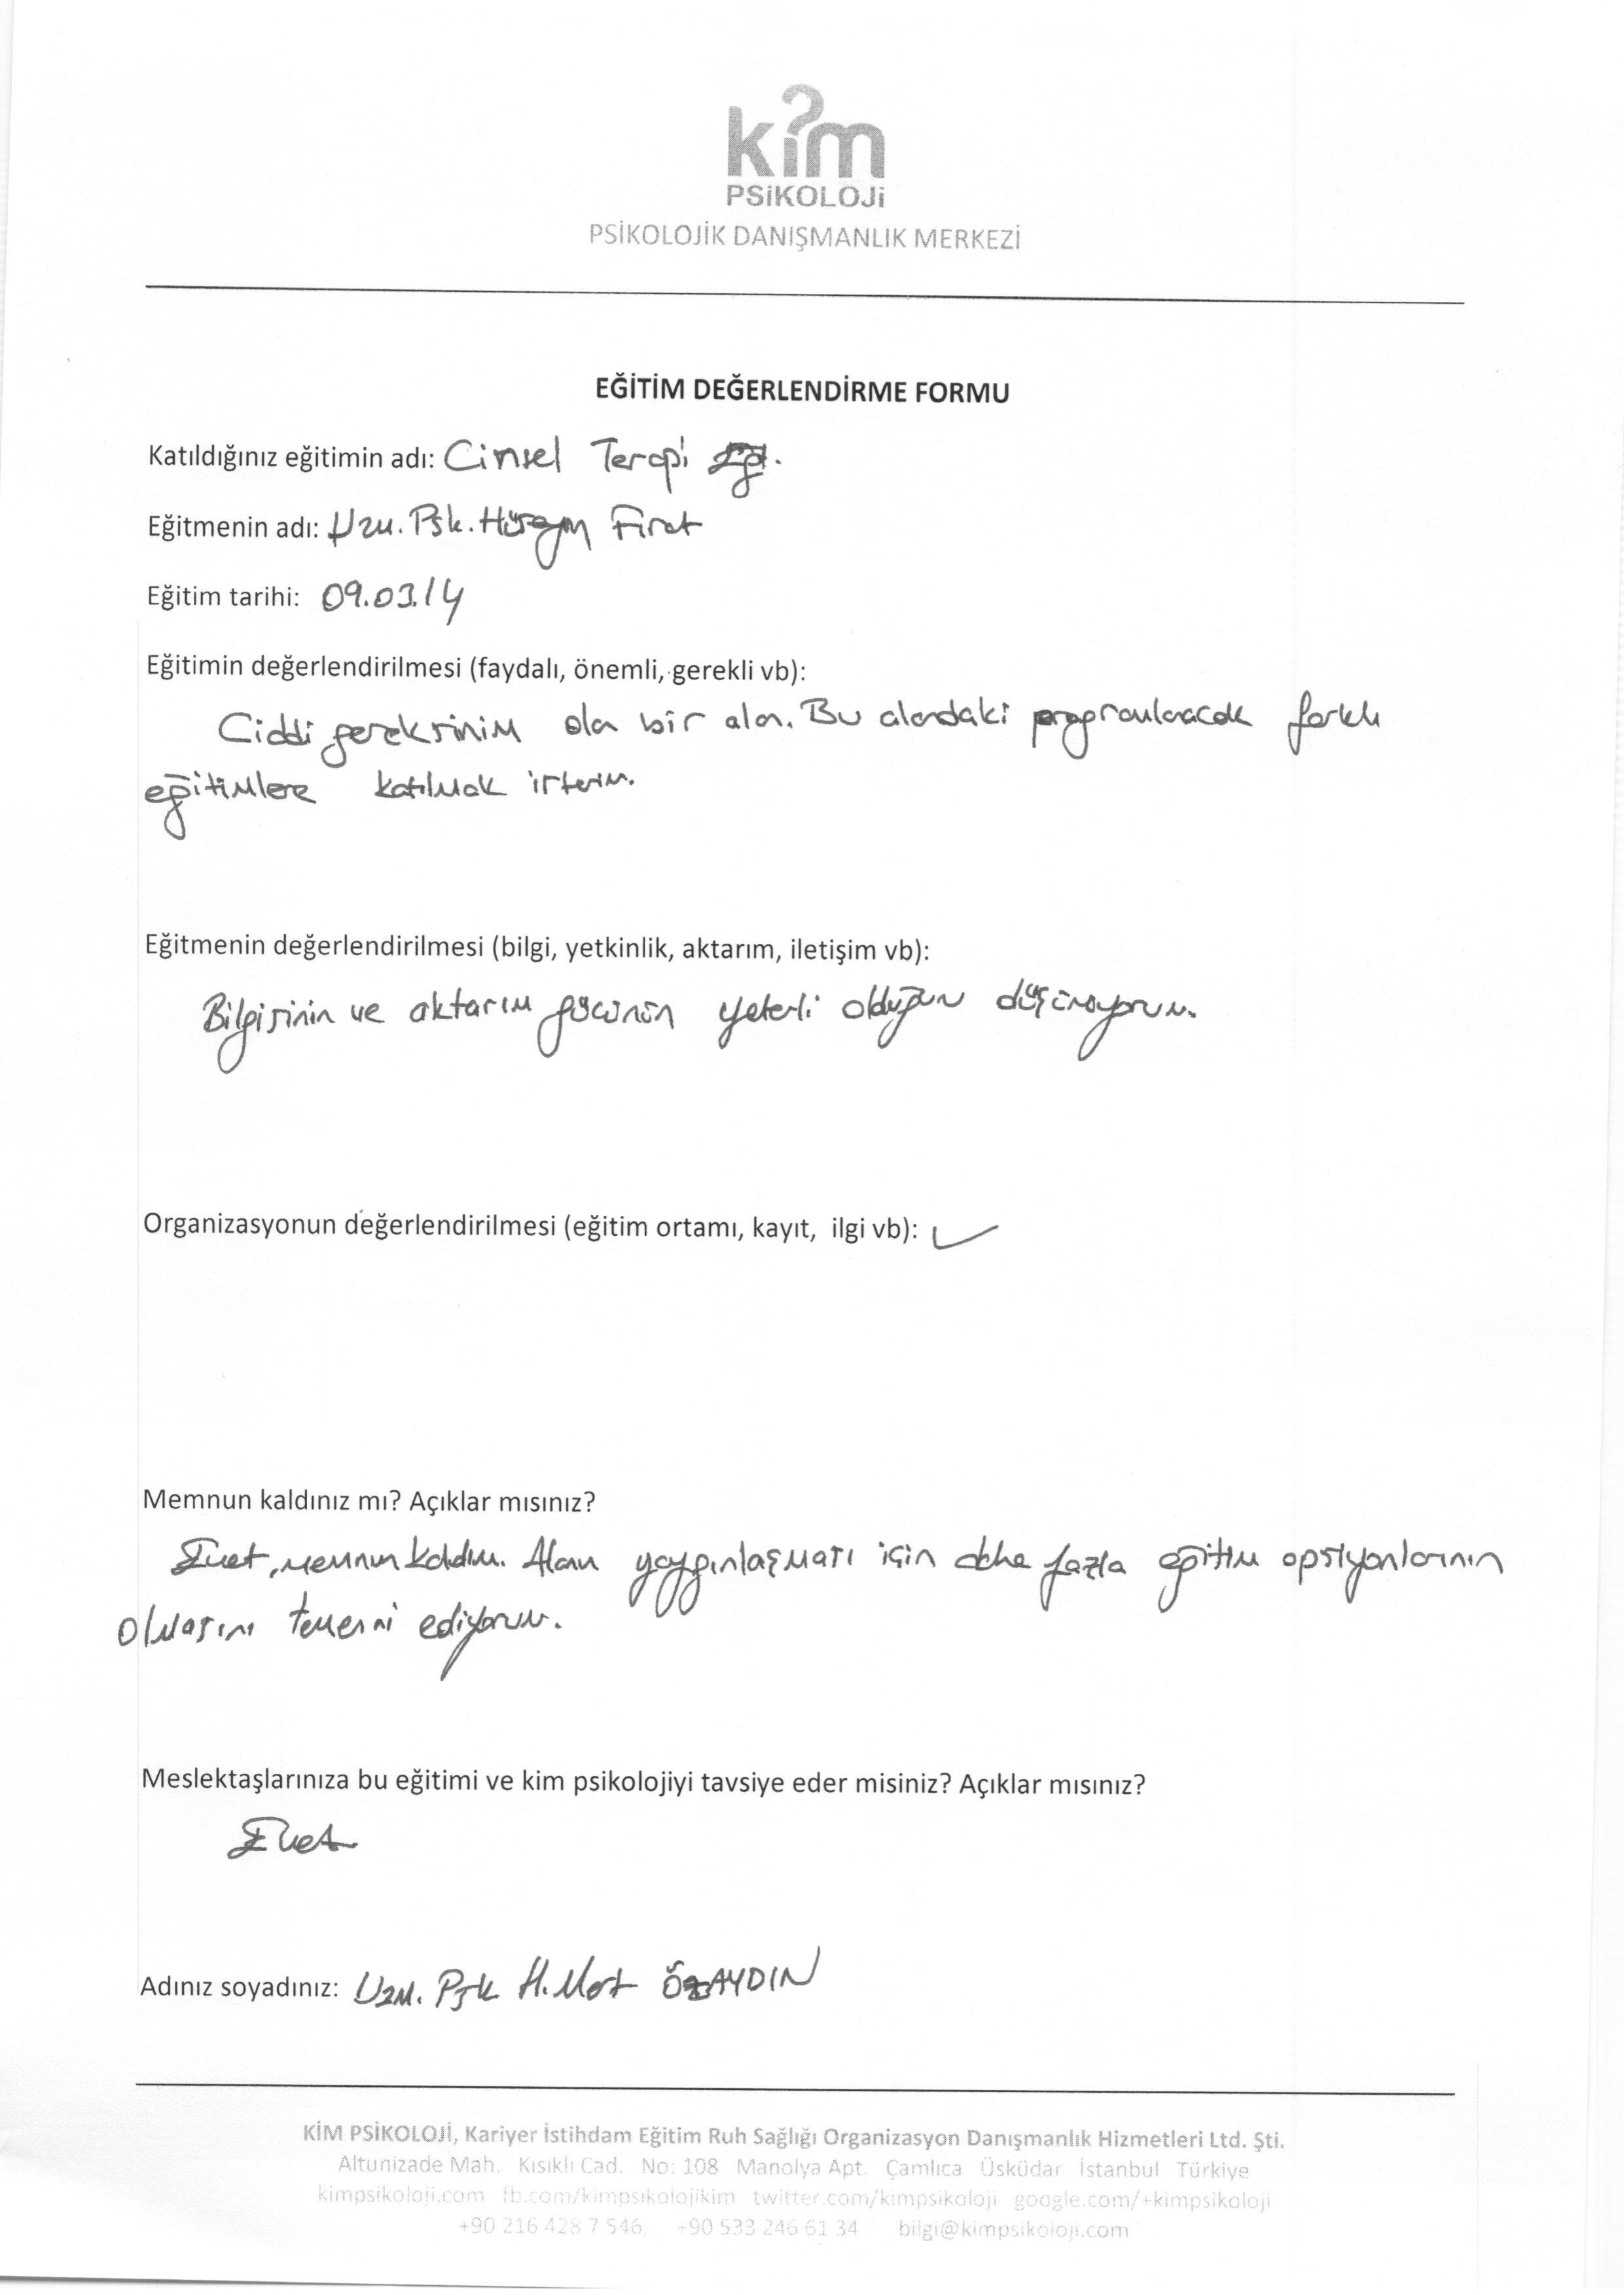 kim
PSiKOLOJi
PSİKOLOJİK DANIŞMANLIK MERKEZİ
EĞİTİM DEĞERLENDİRME FORMU
Katıldığınız eğitimin adı: Cinsel Terapi Eğt.
Eğitmenin adı: Uzm. Psk. Hüseyin Fırat
Eğitim tarihi: 09.03.14
Eğitimin değerlendirilmesi (faydalı, önemli, gerekli vb):
Ciddi gereksinim olan bir alan. Bu alandaki programlanacak farklı
eğitimlere katılmak isterim.
Eğitmenin değerlendirilmesi (bilgi, yetkinlik, aktarım, iletişim vb):
Bilgisinin ve aktarım gücünün yeterli olduğunu düşünüyorum.
Organizasyonun değerlendirilmesi (eğitim ortamı, kayıt, ilgi vb): ✓
Memnun kaldınız mı? Açıklar mısınız?
Evet, memnun kaldım. Alanın yaygınlaşması için daha fazla eğitim opsiyonlarının
olmasını temenni ediyorum.
Meslektaşlarınıza bu eğitimi ve kim psikolojiyi tavsiye eder misiniz? Açıklar mısınız?
Evet
Adınız soyadınız: Uzm. Psk H. Mert ÖZAYDIN
KİM PSİKOLOJİ, Kariyer İstihdam Eğitim Ruh Sağlığı Organizasyon Danışmanlık Hizmetleri Ltd. Şti.
Altunizade Mah. Kısıklı Cad. No: 108 Manolya Apt. Çamlıca Üsküdar İstanbul Türkiye
kimpsikoloji.com fb.com/kimpsikolojikim twitter.com/kimpsikoloji google.com/+kimpsikoloji
+90 216 428 7 546, +90 533 246 61 34 bilgi@kimpsikoloji.com